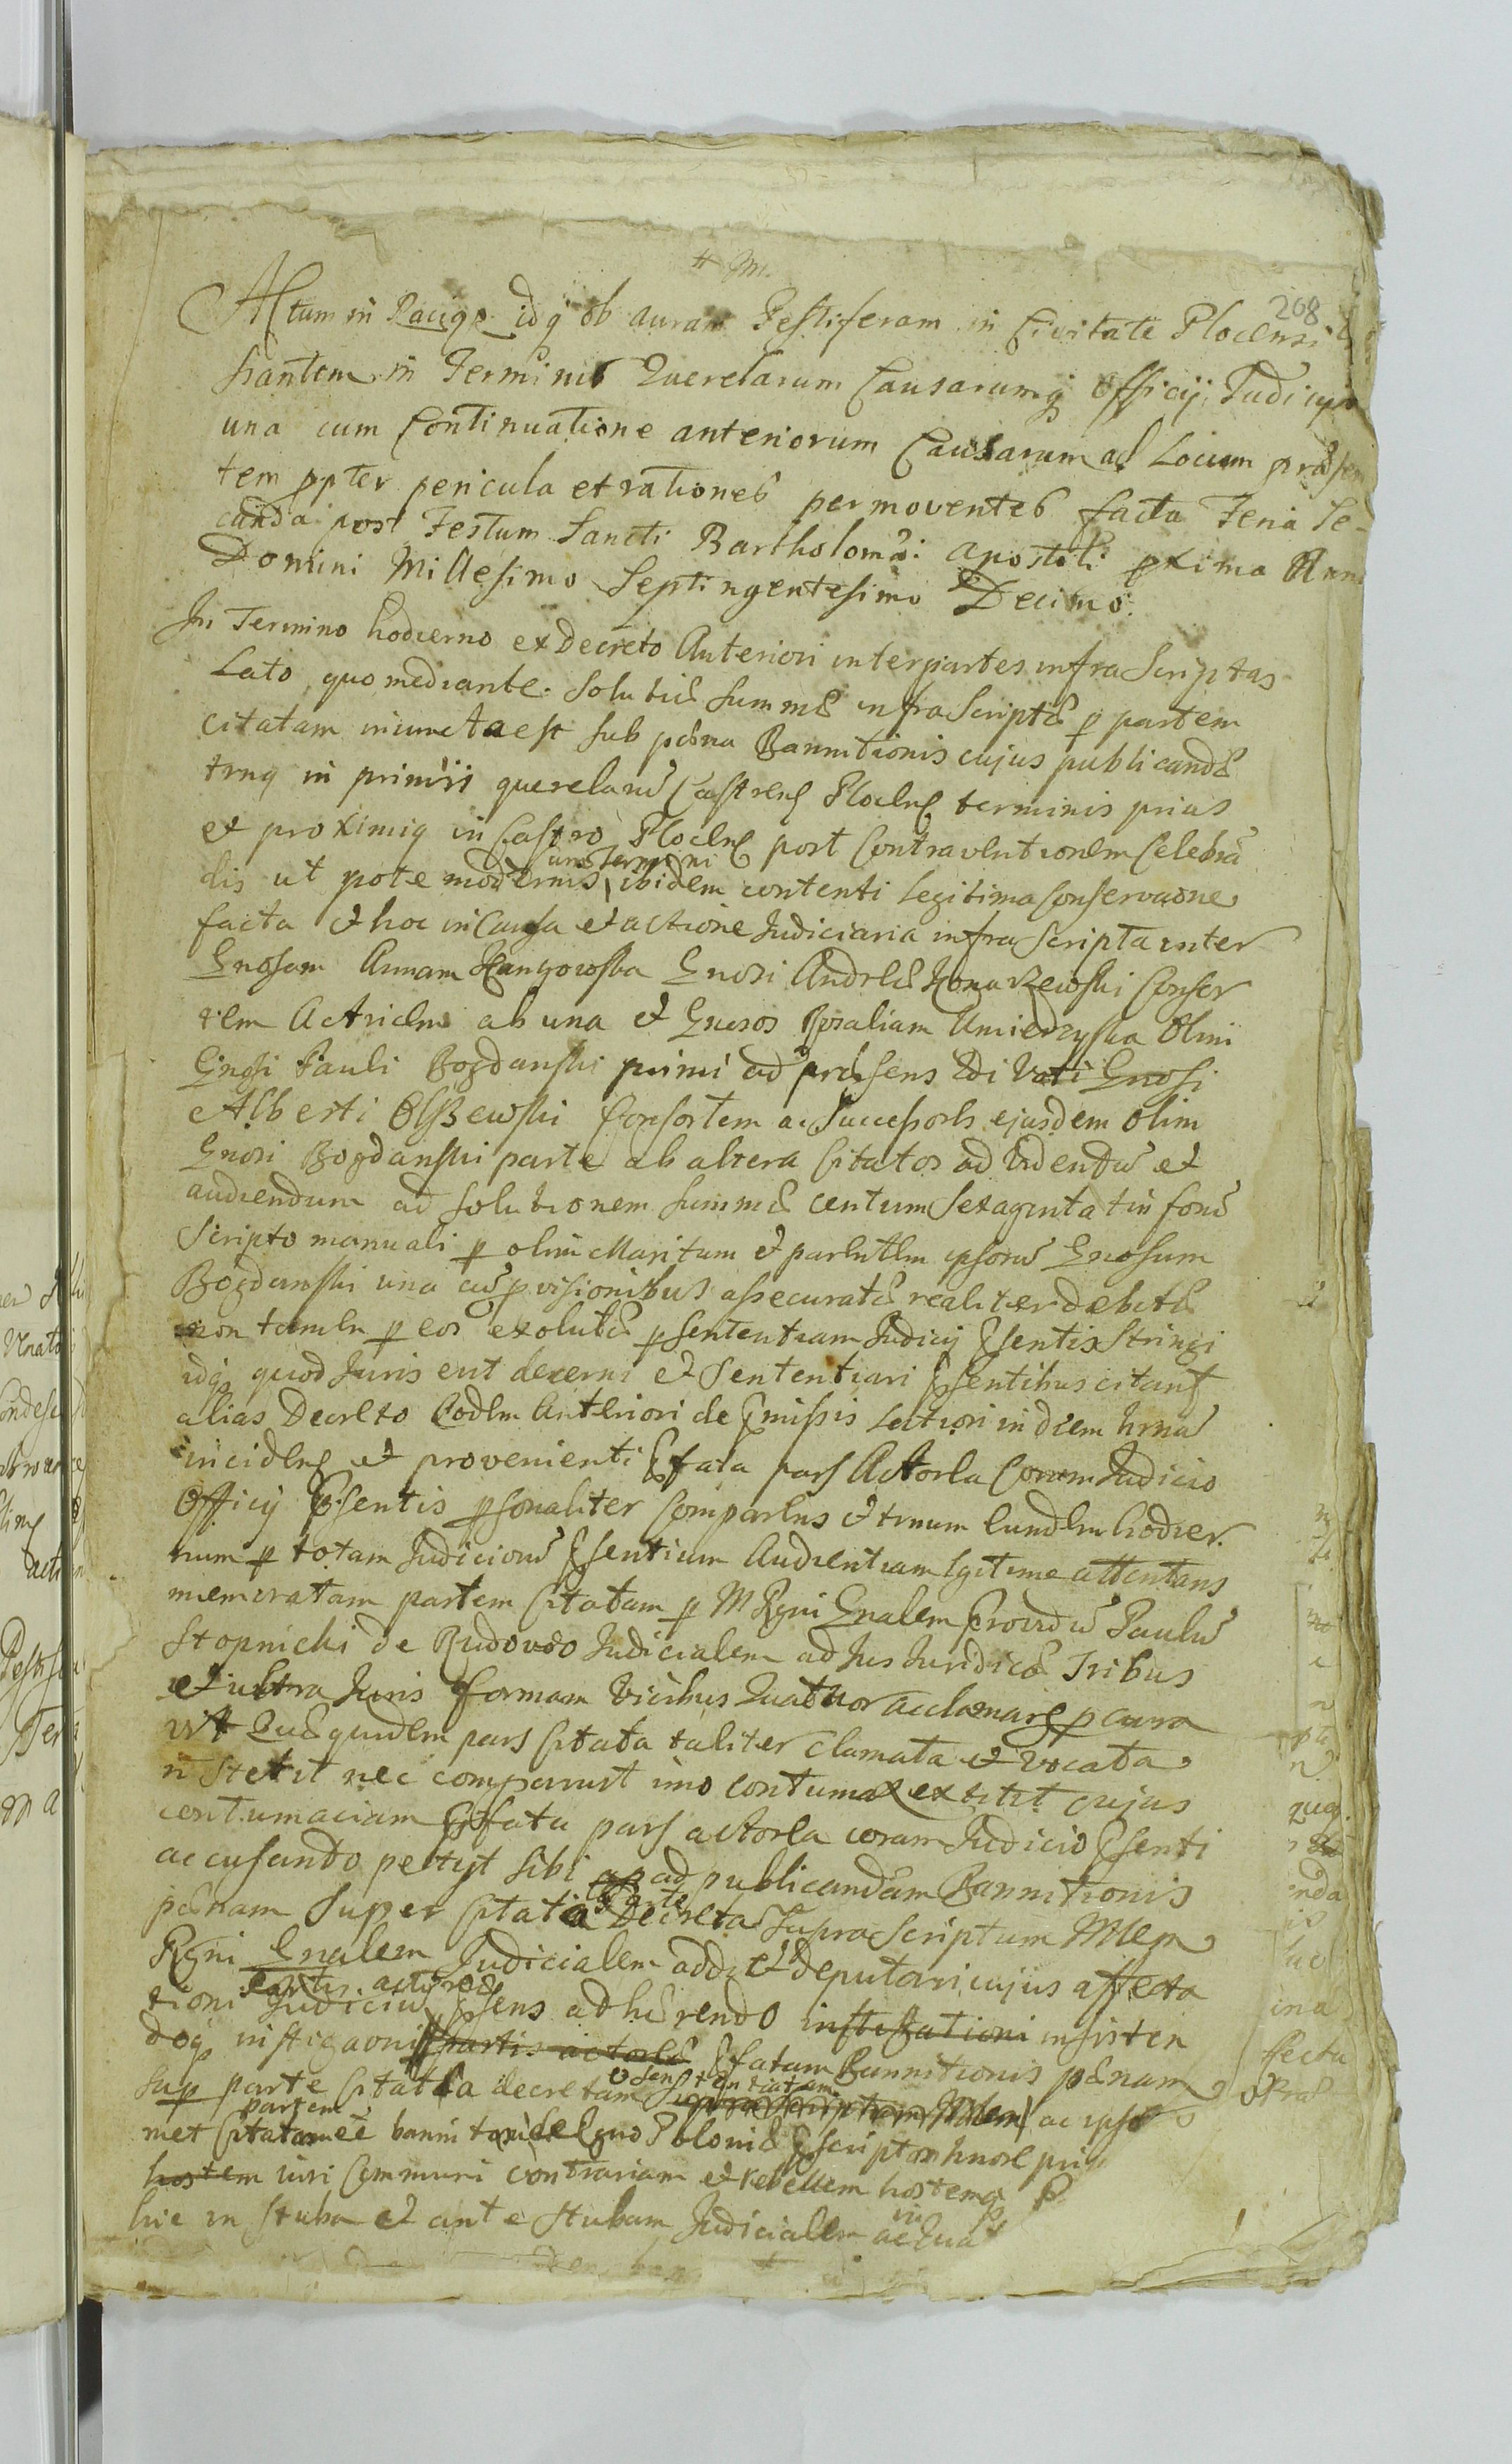 # m.
268
Actum in Raciąż idq ob auram Pestiferam in Civitate Plocensi
stantem in Terminis Querelarum Causarumq Officij Judicij
una cum Continuatione anteriorum Causarum ad Locum præsen
tem ppter pericula et rationes permoventes facta Feria Se-
cunda post Festum Sancti Bartholomæi Apostoli pxima Anno
Domini Millesimo Septingentesimo Decimo.
In Termino hodierno ex Decreto Anteriori inter partes infra Scriptas
Lato quo mediante solutio summæ infra Scriptæ p partem
citatam iniuncta est sub pæna Bannitionis cujus publicandæ
trnq in primis querelarũ Castren Plocen terminis prius
et proximiq in Castro Plocen post Contraventionem Celebrã
dis ut pote modernis ibidem contenti legitima Conservaone
uns Termini
facta et hoc in Causa et actione Judiciaria infra Scripta inter
Gnosam Annam Gnosi Andreæ Consor
tem Actricem ab una et Gnosos Rosaliam Umiedzyska Olim
Gnosi Pauli Bogdanski primi ad præsens 2di Voti Gnosi
Alberti Olszewski Consortem ac Successores ejusdem olim
Gnosi Bogdanski parte ab altera Citatos ad Videndũ et
audiendum ad solutionem summæ centum sexaginta tin fonũ
Scripto manuali p olim Maritum et parentem ipsorũ Gnosum
Bogdanski una cũ pvisionibus assecuratæ realiter debitæ
non tamen p eos exolutæ p Sententiam Judicij Psentis Stringi
idq quod Juris erit decerni et Sententiari Psentibus citanf
alias Decreto Eodem Anteriori de Pmissis Latiori in diem hrnũ
inciden et provenienti Pfata pars Actorea Coram Judicio
Officij Psentis psonaliter Comparens et trnum eundem hodier.
num p totam Judiciorũ Psentium Audientiam lgitime attentans
memoratam partem Citatam p M Rgni Gnalem Providũ Paulũ
Stopnicki de Rudowo Judicialem ad Jus Juridicæ Tribus
et ultra Juris formam Vicibus Quatuor acclamare pcura
vit Quæquidem pars Citata taliter clamata et vocata
n stetit nec comparuit imo contumax extitit cujus
contumaciam Pfata pars actorea coram Judicio Psenti
accusando petijt sibi ad publicandam Bannitionis
pænam Super Citatia Decreta Supra Scriptum Mlem
Rgni Gnalem Judicialem addi et deputari cujus affecta
partis actoreæ
tioni Judiciũ Psens adhærendo instigationi insisten
doq instigaoni partis actoreæ Pfatam Bannitionis pænam
sup parte Citatta decretam supra Scriptum Mlem ac ipsã
o Sententiatam
partem
met Citatam et bannitam de Regno Poloniæ
hostem iuri Communi contrariam et rebellem hostemq P
hic in stuba et ante stubam Judicialem
in